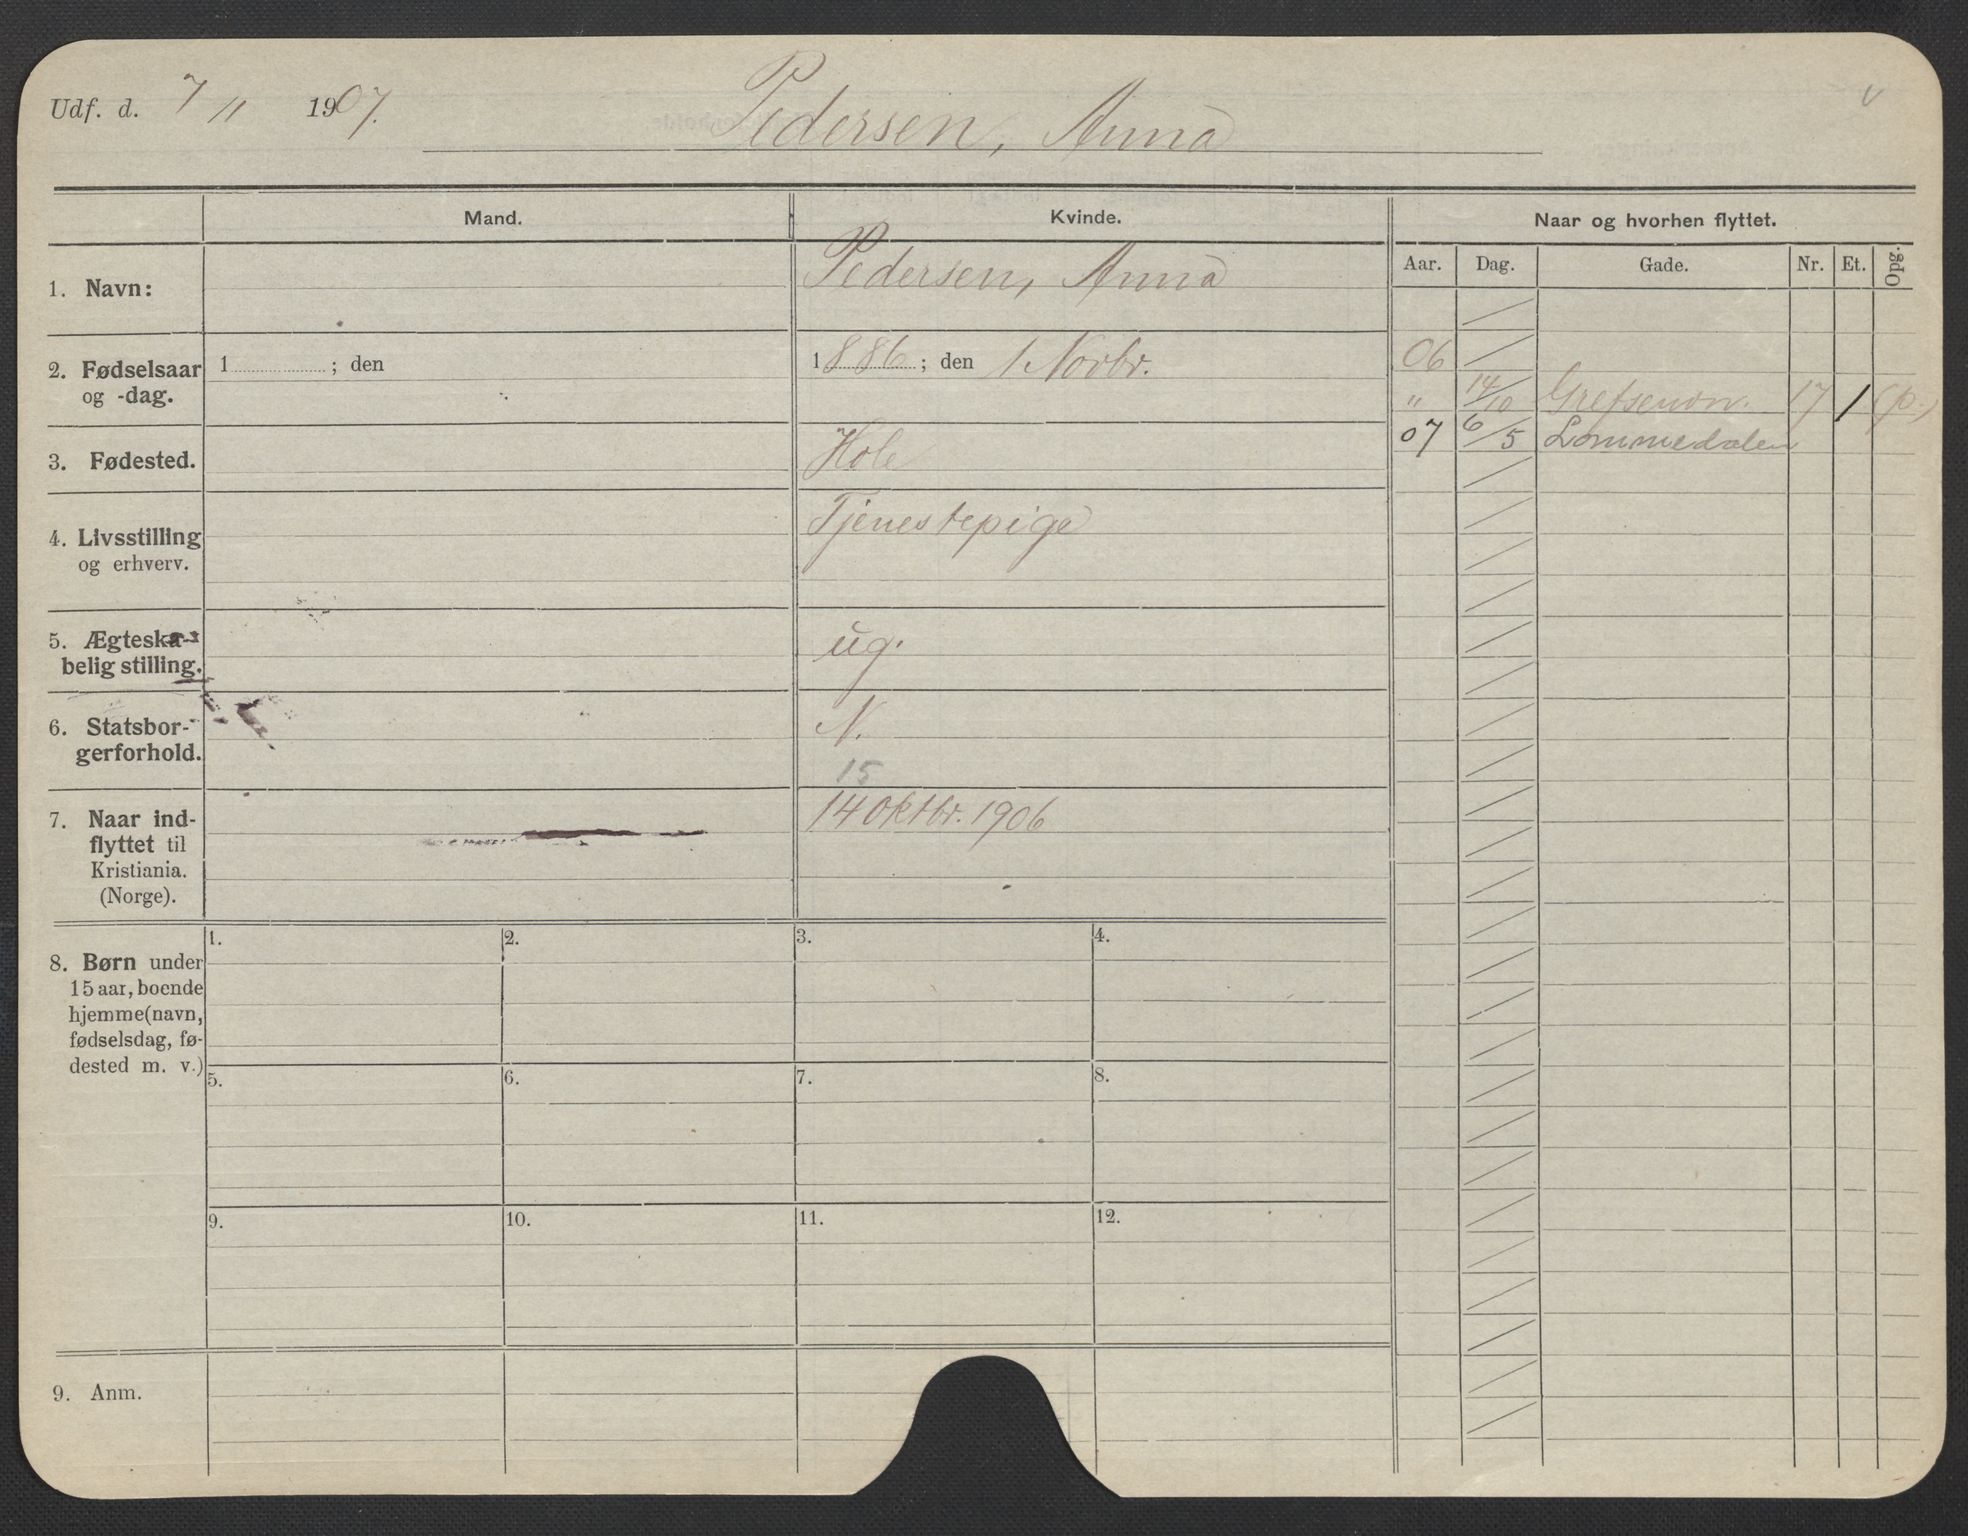 Udf. d. 7/11 1907.
Pedersen, Anna
Mand. Kvinde. Naar og hvorhen flyttet.
Aar. Dag. Gade. Nr. Et. Opg.
1. Navn: Pedersen, Anna
2. Fødselsaar 1 ; den 1886 ; den 1 Novbr.
og -dag.
06
" 14/10 Grefsenvn. 17 1 (p.)
07 6/5 Lommedalen
3. Fødested. Hole
4. Livsstilling Tjenestepige
og erhverv.
5. Ægteska-
belig stilling. ug.
6. Statsbor- N.
gerforhold.
15
7. Naar ind- 14 oktbr. 1906
flyttet til
Kristiania.
(Norge).
1. 2. 3. 4.
8. Børn under
15 aar, boende
hjemme (navn,
fødselsdag, fø-
dested m. v.)
5. 6. 7. 8.
9. 10. 11. 12.
9. Anm.